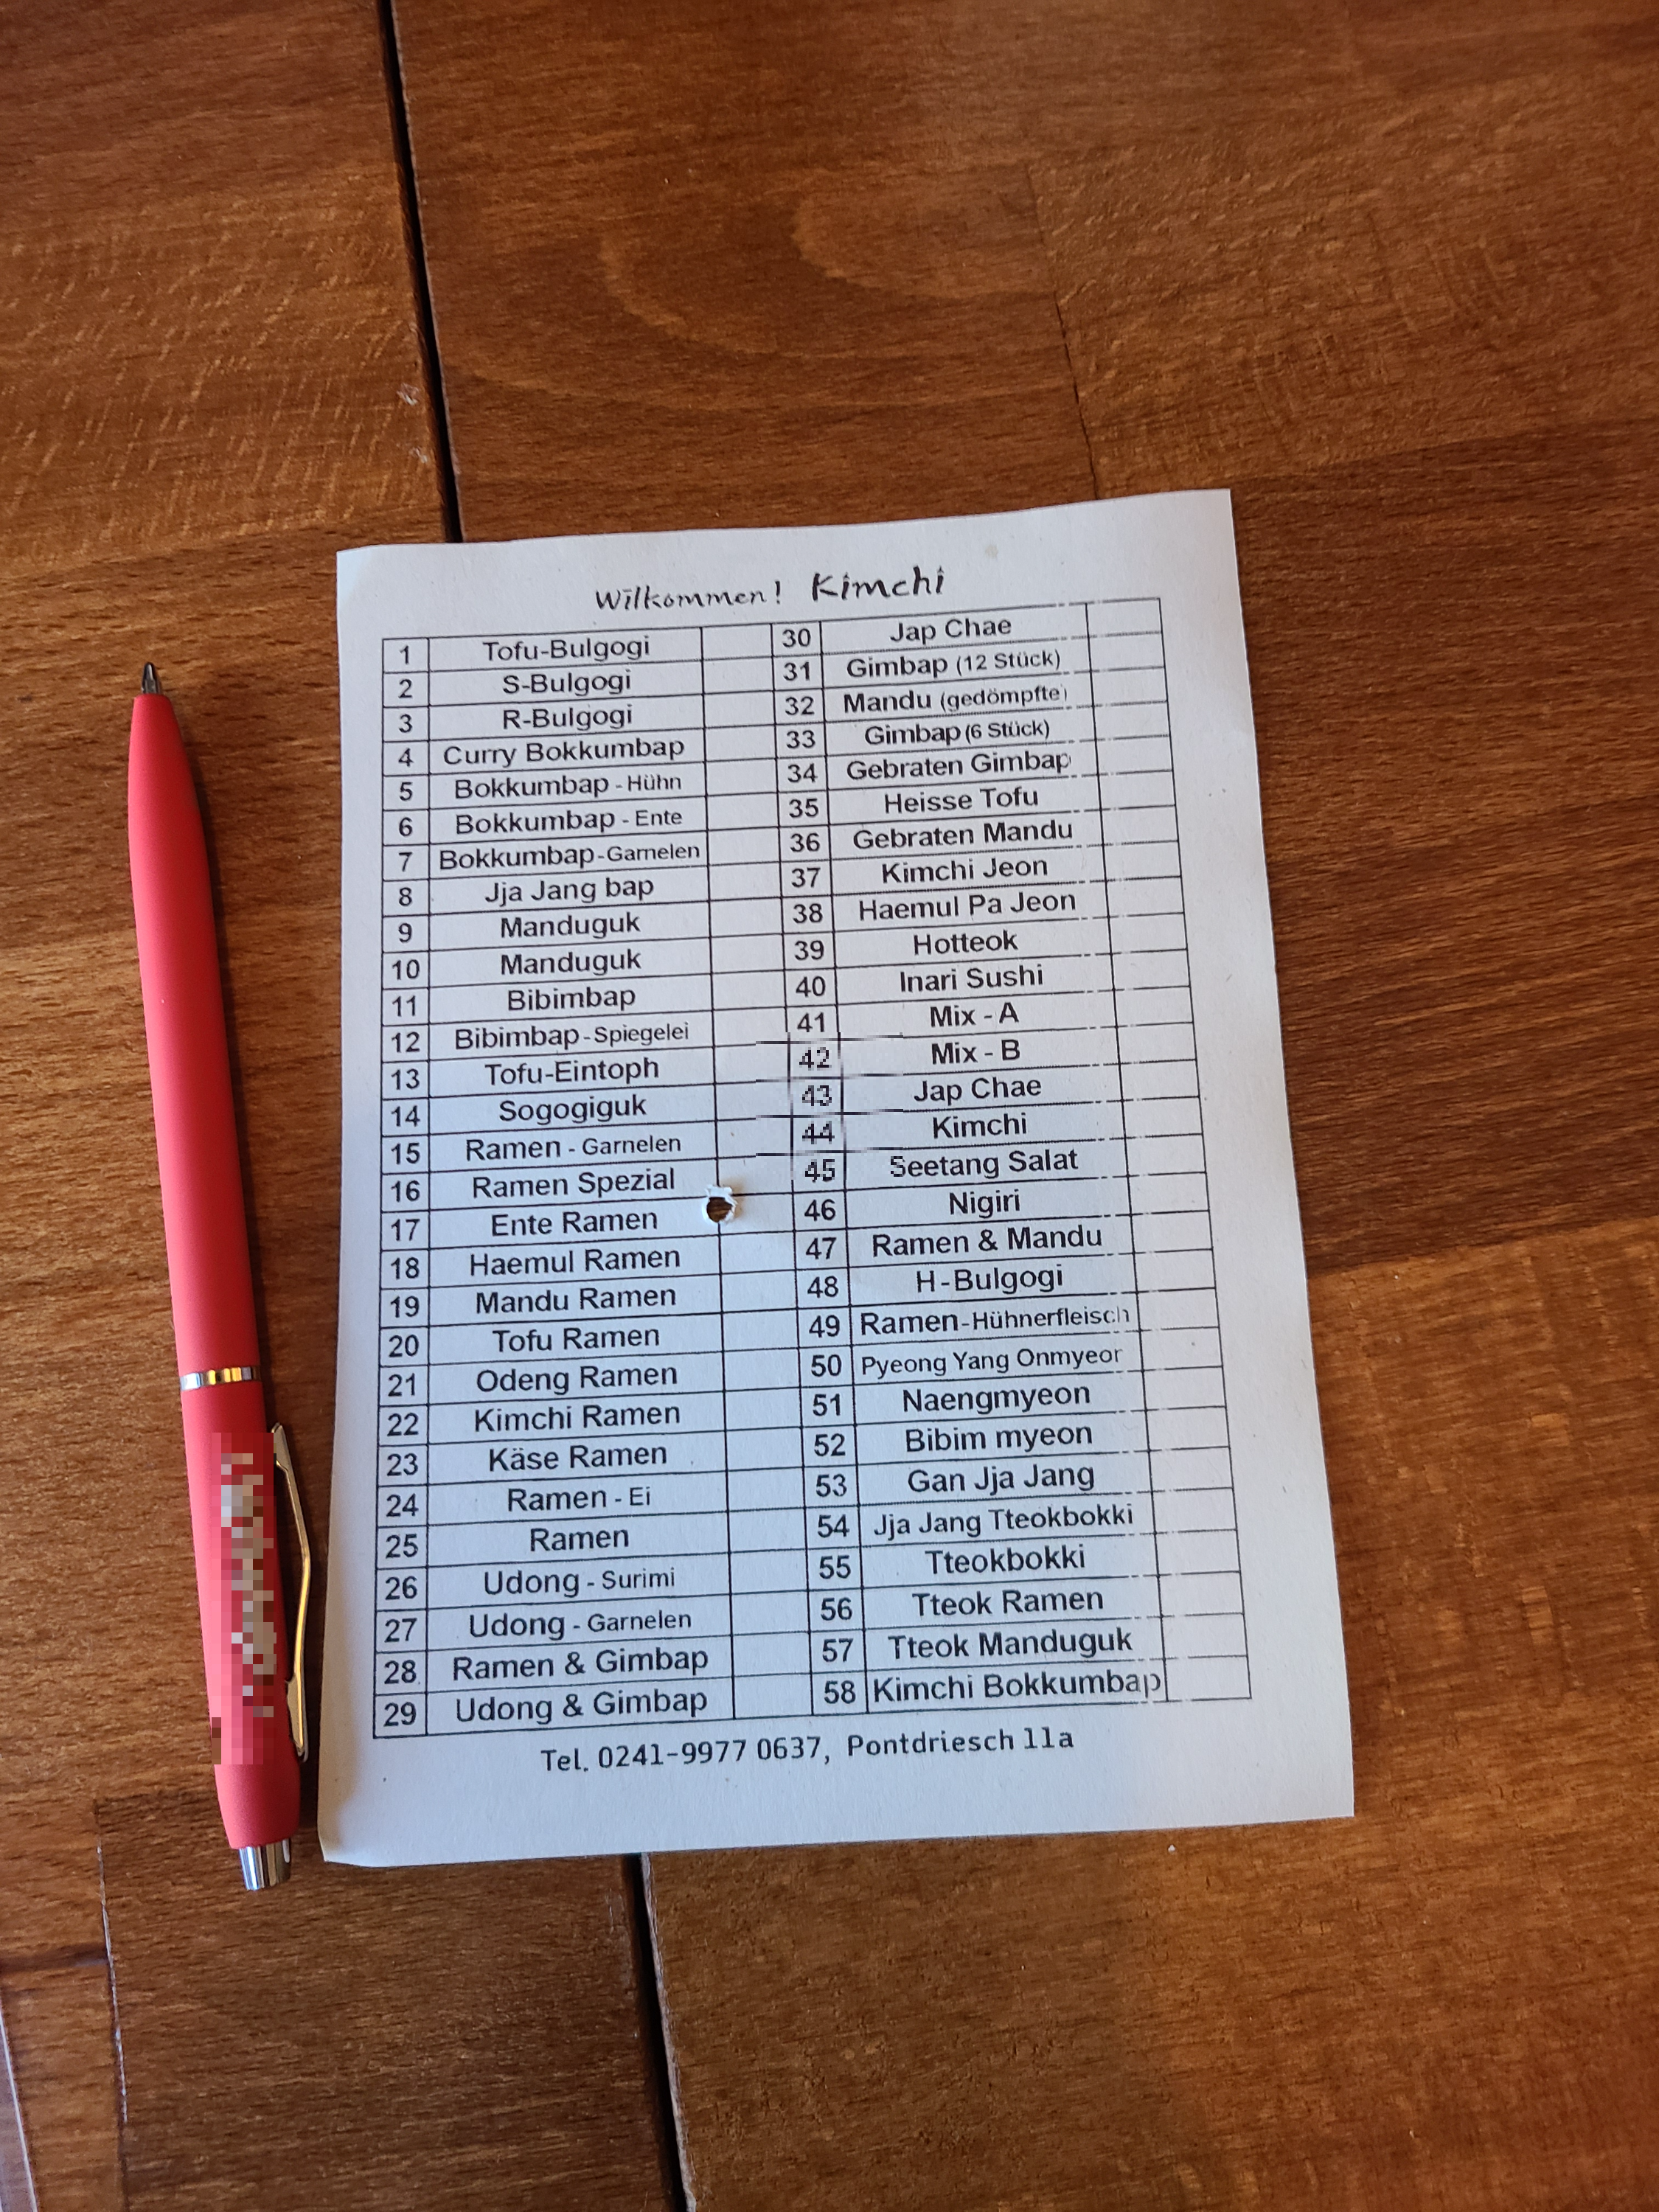 Wilkommen! Kimchi
1 Tofu-Bulgogi 30 Jap Chae
2 S-Bulgogi 31 Gimbap (12 Stück)
3 R-Bulgogi 32 Mandu (gedömpfte)
4 Curry Bokkumbap 33 Gimbap (6 Stück)
5 Bokkumbap - Hühn 34 Gebraten Gimbap
6 Bokkumbap - Ente 35 Heisse Tofu
7 Bokkumbap - Garnelen 36 Gebraten Mandu
8 Jja Jang bap 37 Kimchi Jeon
9 Manduguk 38 Haemul Pa Jeon
10 Manduguk 39 Hotteok
11 Bibimbap 40 Inari Sushi
12 Bibimbap - Spiegelei 41 Mix - A
13 Tofu-Eintoph 42 Mix - B
14 Sogogiguk 43 Jap Chae
15 Ramen - Garnelen 44 Kimchi
16 Ramen Spezial 45 Seetang Salat
17 Ente Ramen 46 Nigiri
18 Haemul Ramen 47 Ramen & Mandu
19 Mandu Ramen 48 H-Bulgogi
20 Tofu Ramen 49 Ramen-Hühnerfleisch
21 Odeng Ramen 50 Pyeong Yang Onmyeor
22 Kimchi Ramen 51 Naengmyeon
23 Käse Ramen 52 Bibim myeon
24 Ramen - Ei 53 Gan Jja Jang
25 Ramen 54 Jja Jang Tteokbokki
26 Udong - Surimi 55 Tteokbokki
27 Udong - Garnelen 56 Tteok Ramen
28 Ramen & Gimbap 57 Tteok Manduguk
29 Udong & Gimbap 58 Kimchi Bokkumbap
Tel. 0241-9977 0637, Pontdriesch 11a